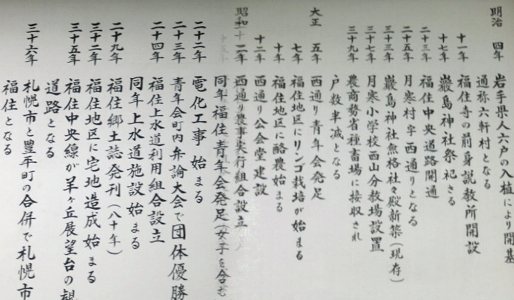 明治 四年 岩手県人六戸の入植により開基
通称六軒村となる
十一年 福住寺の前身説教所開設
十七年 厳島神社祭祀さる
二十三年 福住中央道路開通
二十五年 月寒村字西通りとなる
三十一年 厳島神社無格社々殿新築(現存)
三十七年 月寒小学校西山分教場設置
三十九年 農商務省種畜場に接収され
戸数半減となる
大正 五年 西通り青年会発足
七年 福住地区にリンゴ栽培が始まる
十年 福住地区に酪農始まる
十二年 西通り公会堂建設
昭和 二年 西通り農事実行組合設立
同年福住青年会発足(女子を含む
二十二年 電化工事始まる
二十三年 青年会町内弁論大会で団体優勝
二十四年 福住上水道利用組合設立
同年上水道施設始まる
二十九年 福住郷土誌発刊(八十年)
三十二年 福住地区に宅地造成始まる
三十五年 福住中央線が羊ヶ丘展望台の観
道路となる
三十六年 札幌市と豊平町の合併で札幌市
福住となる